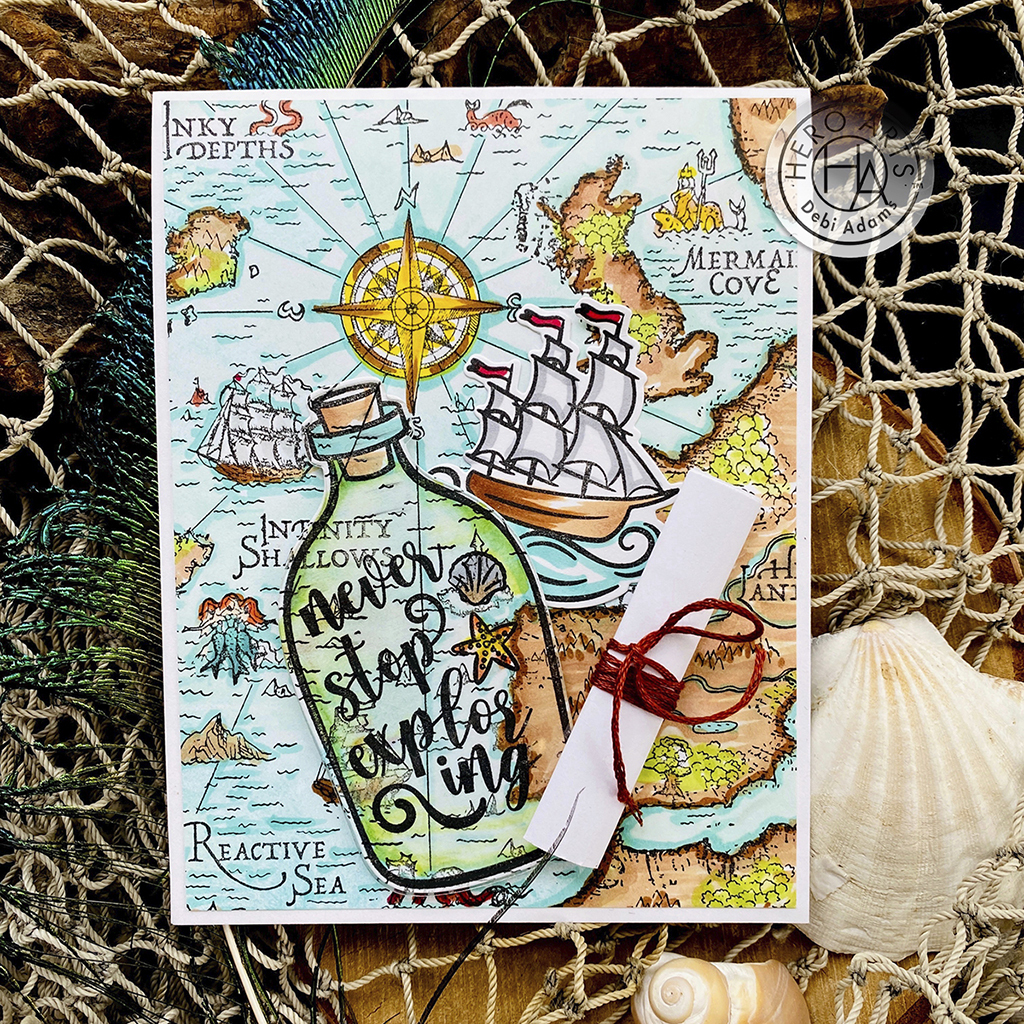 INKY
DEPTHS
N
HERO ARTS
HA
Debi Adams
MERMAI
COVE
D
W
S
INFINITY
SHALLOWS
never
stop
explor
ing
REACTIVE
SEA